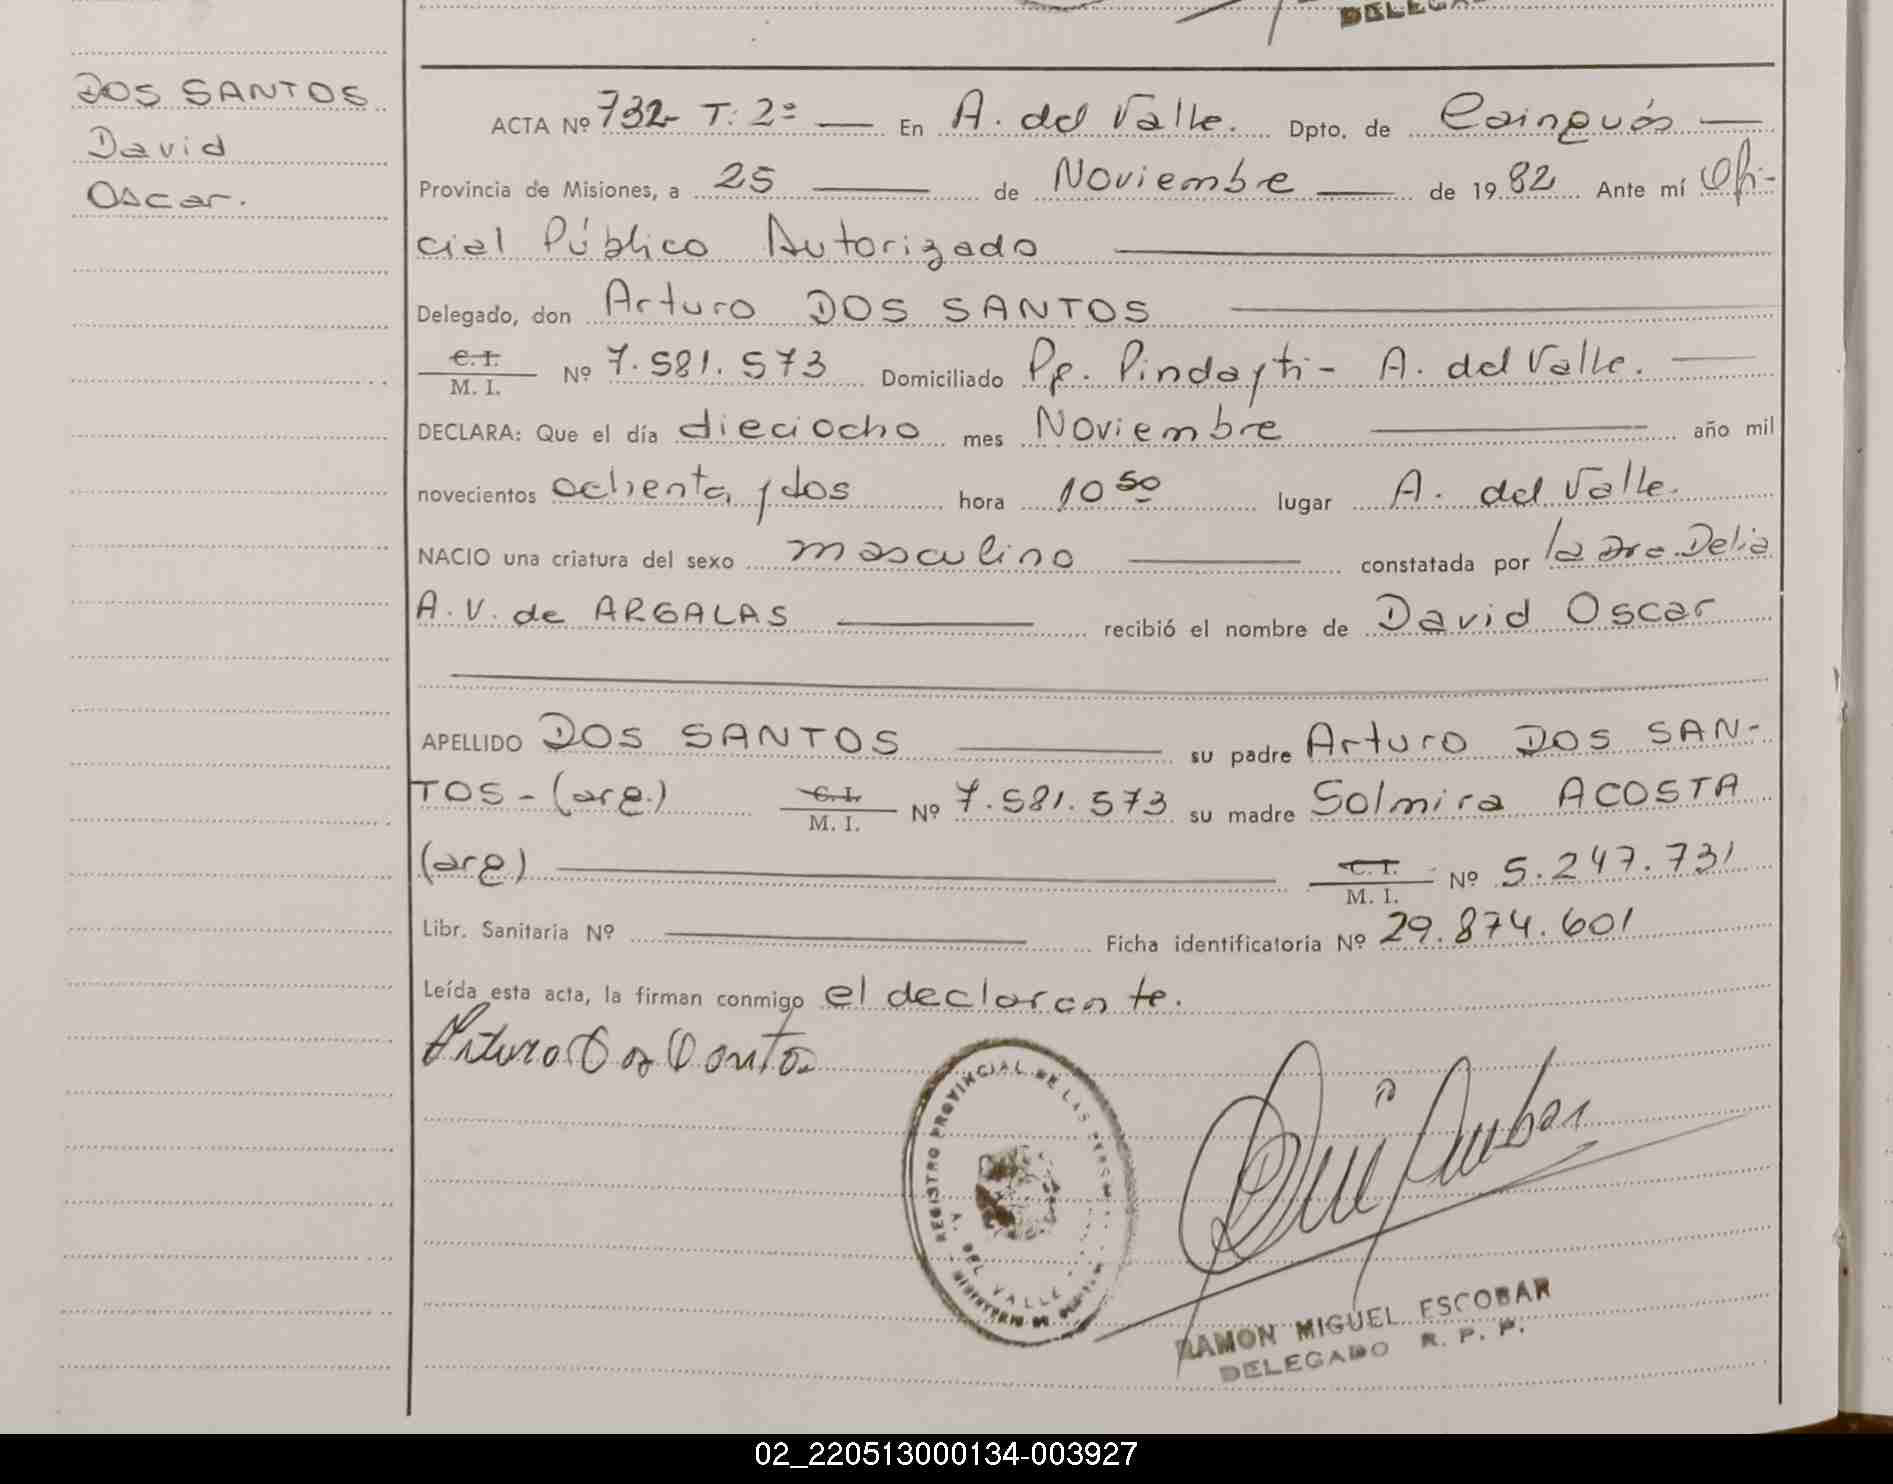 DELEGA
DOS SANTOS
David
Oscar.
ACTA Nº 732- T: 2º — En A. del Valle. Dpto. de Cainguás —
Provincia de Misiones, a 25 — de Noviembre — de 1982 Ante mí Ofi-
cial Público Autorizado —
Delegado, don Arturo DOS SANTOS —
C. I.
M. I. Nº 7.581.573 Domiciliado Pje. Pindayti - A. del Valle. —
DECLARA: Que el día dieciocho mes Noviembre — año mil
novecientos ochenta y dos hora 10 50 lugar A. del Valle.
NACIO una criatura del sexo masculino — constatada por la Dra. Delia
A. V. de ARGALAS — recibió el nombre de David Oscar
—
APELLIDO DOS SANTOS — su padre Arturo DOS SAN-
TOS - (arg.) C. I. M. I. Nº 7.581.573 su madre Solmira ACOSTA
(arg) — C. I. M. I. Nº 5.247.731
Libr. Sanitaria Nº — Ficha identificatoria Nº 29.874.601
Leída esta acta, la firman conmigo el declarante.
Arturo Dos Santos
REGISTRO PROVINCIAL DE LAS PERSONAS
A. DEL VALLE
RAMON MIGUEL ESCOBAR
DELEGADO R. P. P.
02_220513000134-003927